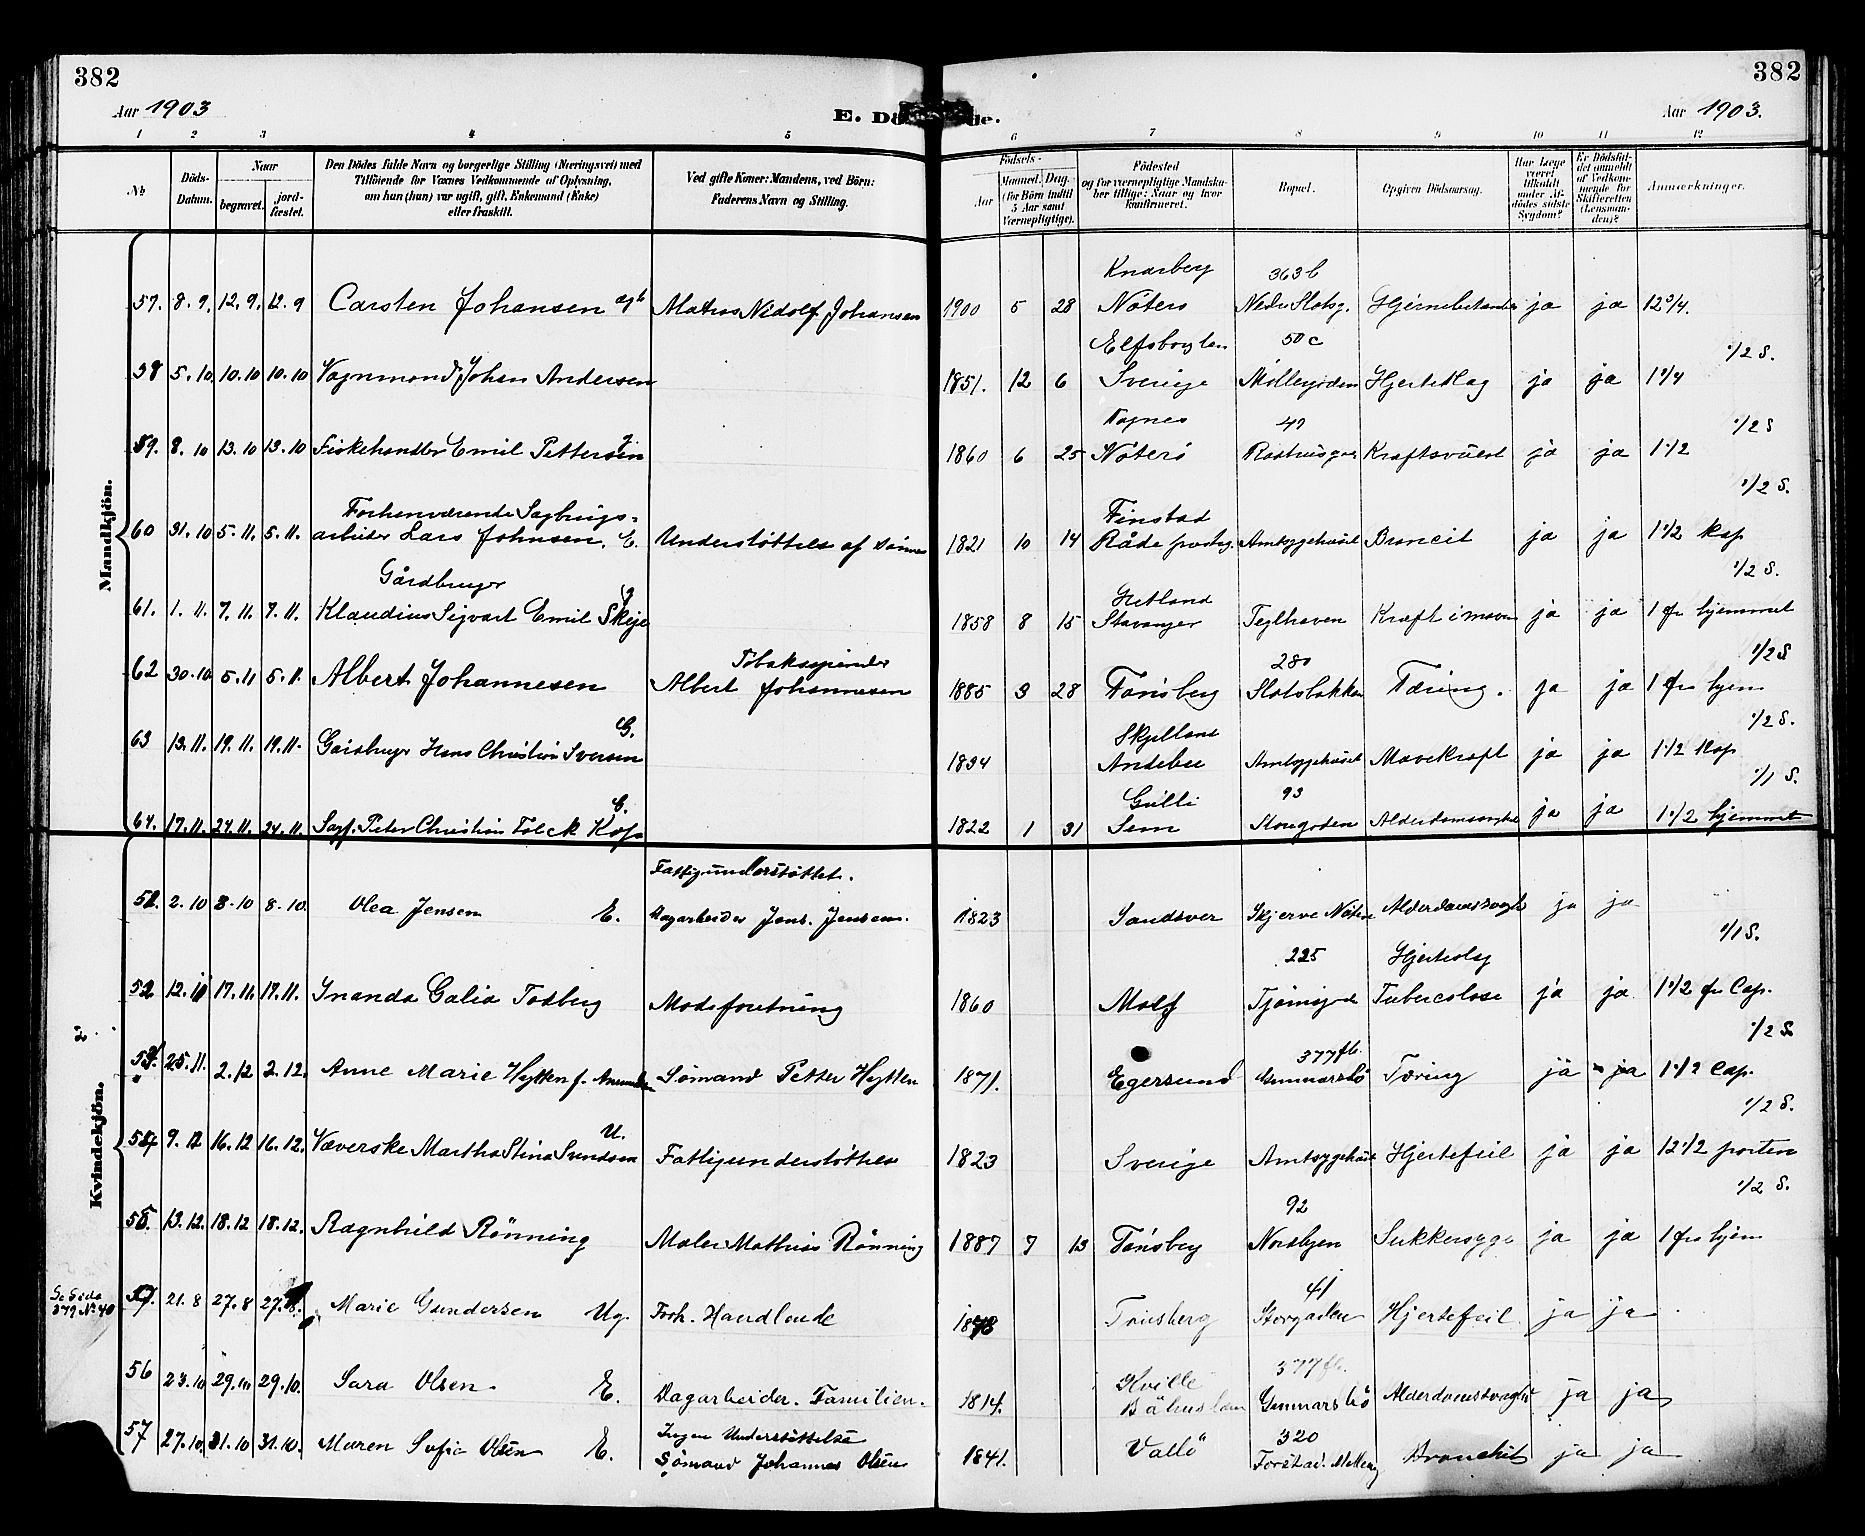 382
382
Aar 1903
E. Dö de.
Aar 1903.
1 2 3 4 5 6 7 8 9 10 11 12
No
Döds-Datum.
Naar
begravet.
jord-fæstet.
Den Dödes fulde Navn og borgerlige Stilling (Næringsvei) med
Tilföiende for Voxnes Vedkommende af Oplysning,
om han (hun) var ugift, gift, Enkemand (Enke)
eller fraskilt.
Ved gifte Koner: Mandens, ved Börn:
Faderens Navn og Stilling.
Födsels-
Aar
Maaned. Dag.
(for Börn indtil
5 Aar samt
Værnepligtige).
Födested
og for værnepligtige Mandska-
ber tillige: Naar og hvor
konfirmeret.
Bopæl.
Opgiven Dödsaarsag.
Har Læge
været
tilkaldt
under Af-
dödes sidste
Sygdom?
Er Dödsfal-
det anmeldt
af Vedkom-
mende for
Skifteretten
(Lensman-
den)?
Anmærkninger.
Mandkjön.
Knarberg 363 b
57. 8.9. 12.9. 12.9 Carsten Johansen Matros Nidolf Johansen 1900 5 28 Nöterö Nedr Slotsg. ja ja
50 c 1/2 S.
58 5.10 10.10 10.10 Vognmand Johan Andersen 1851. 12 6 Sverige Möllegaden Hjerteslag ja ja
49 1/2 S
59. 8.10 13.10 13.10 Fiskehandler Emil Pettersen 1860 6 25 Nöterö Kræftsvulst ja ja 1 1/2
1/2 S.
Forhenværende Sagbrugs- Finstad
60 31.10 5.11. 5.11. arbeider Lars Johnsen. E. Understöttes af sönner 1821 10 14 Råde Amtsygehuset Broncit ja ja 1 1/2 Kap
Gårdbruger g 1/2 S.
Hetland
61. 1.11. 7.11. 7.11. Klaudius Sigvart Emil Skeje 1858 8 15 Stavanger Teglhaven Kræft i maven ja ja 1 fr hjemmet
Tobaksspinder 280 1/2 S
62 30.10 5.11 5.11. Albert Johannesen Albert Johannesen 1885 3 28 Tönsberg Slotsbakken Tæring. ja ja 1 fra hjem
G. 1/2 S.
63 13.11. 19.11. 19.11. Gaardbruger Hans Christian Iversen 1834 Andebu Amtsygehuset Mavekræft ja ja 1 1/2 Kap
E. Gulli 93 1/1 S.
64. 17.11. 24.11. 24.11. Peter Christian Folck 1822 1 31 Sem Storgaden Alderdomssvaghed ja ja 1 1/2 hjemmet
Kvindekjön.
Fattigunderstöttet.
51. 2.10 8.10 8.10. Olea Jensen E. Dagarbeider Jens. Jensen. 1823 Sandsver Skjerve Nöterö Alderdomssvaghed ja ja
225 Hjerteslag 1/1 S.
52 12.11 17.11. 17.11. Inanda Galia Todberg Modeforretning 1860 Tuberculose ja ja 1 1/2 fr Cap.
377 fb. 1/2 S
53. 25.11. 2.12 2.12. Anne Marie Hytten f. Sömand Petter Hytten 1871. Egersund Gunnarsbö Tæring ja ja 1 1/2 Cap.
U. 1/2 S.
54 9.12 16.12 16.12. Væverske Martha Stina Svendsen Fattigunderstöttes 1823 Sverige Amtsygehuset Hjertefeil ja ja 12 1/2 porten
92 1/2 S.
55. 13.12. 18.12 18.12. Ragnhild Rönning Maler Mathias Rönning 1887 7 13 Tönsberg Nordbyen Sukkersyge ja ja 1 fra hjem
Se Side
379 No 40
41
21.8 27.8 27.8. Marie Gundersen Ug. Forh. Handlende Tönsberg Storgaden Hjertefeil ja ja
Kville 377 fb.
56 23.10 29.10 29.10. Sara Olsen. E. Dagarbeider. Familien. 1814. Båhuslen Gunnarsbö Alderdomssvaghed ja ja
Ingen Understöttelse 320
57 27.10. 31.10 31.10. Maren Sofie Olsen E. Sömand Johannes Olsen 1841. Vallö Bronchit ja ja